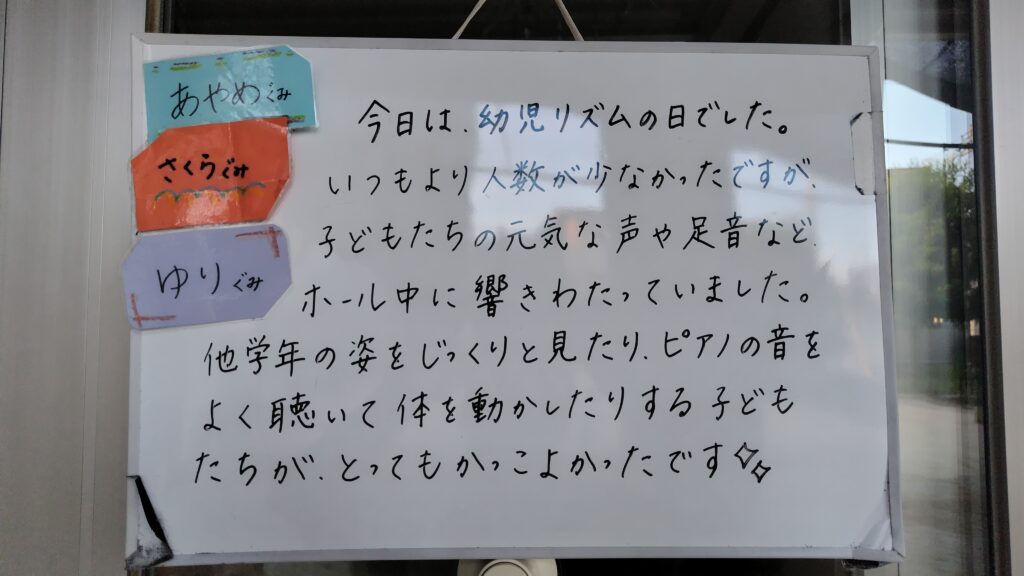 あやめぐみ
さくらぐみ
ゆりぐみ
今日は、幼児リズムの日でした。
いつもより人数が少なかったですが、
子どもたちの元気な声や足音など、
ホール中に響きわたっていました。
他学年の姿をじっくりと見たり、ピアノの音を
よく聴いて体を動かしたりする子ども
たちが、とってもかっこよかったです